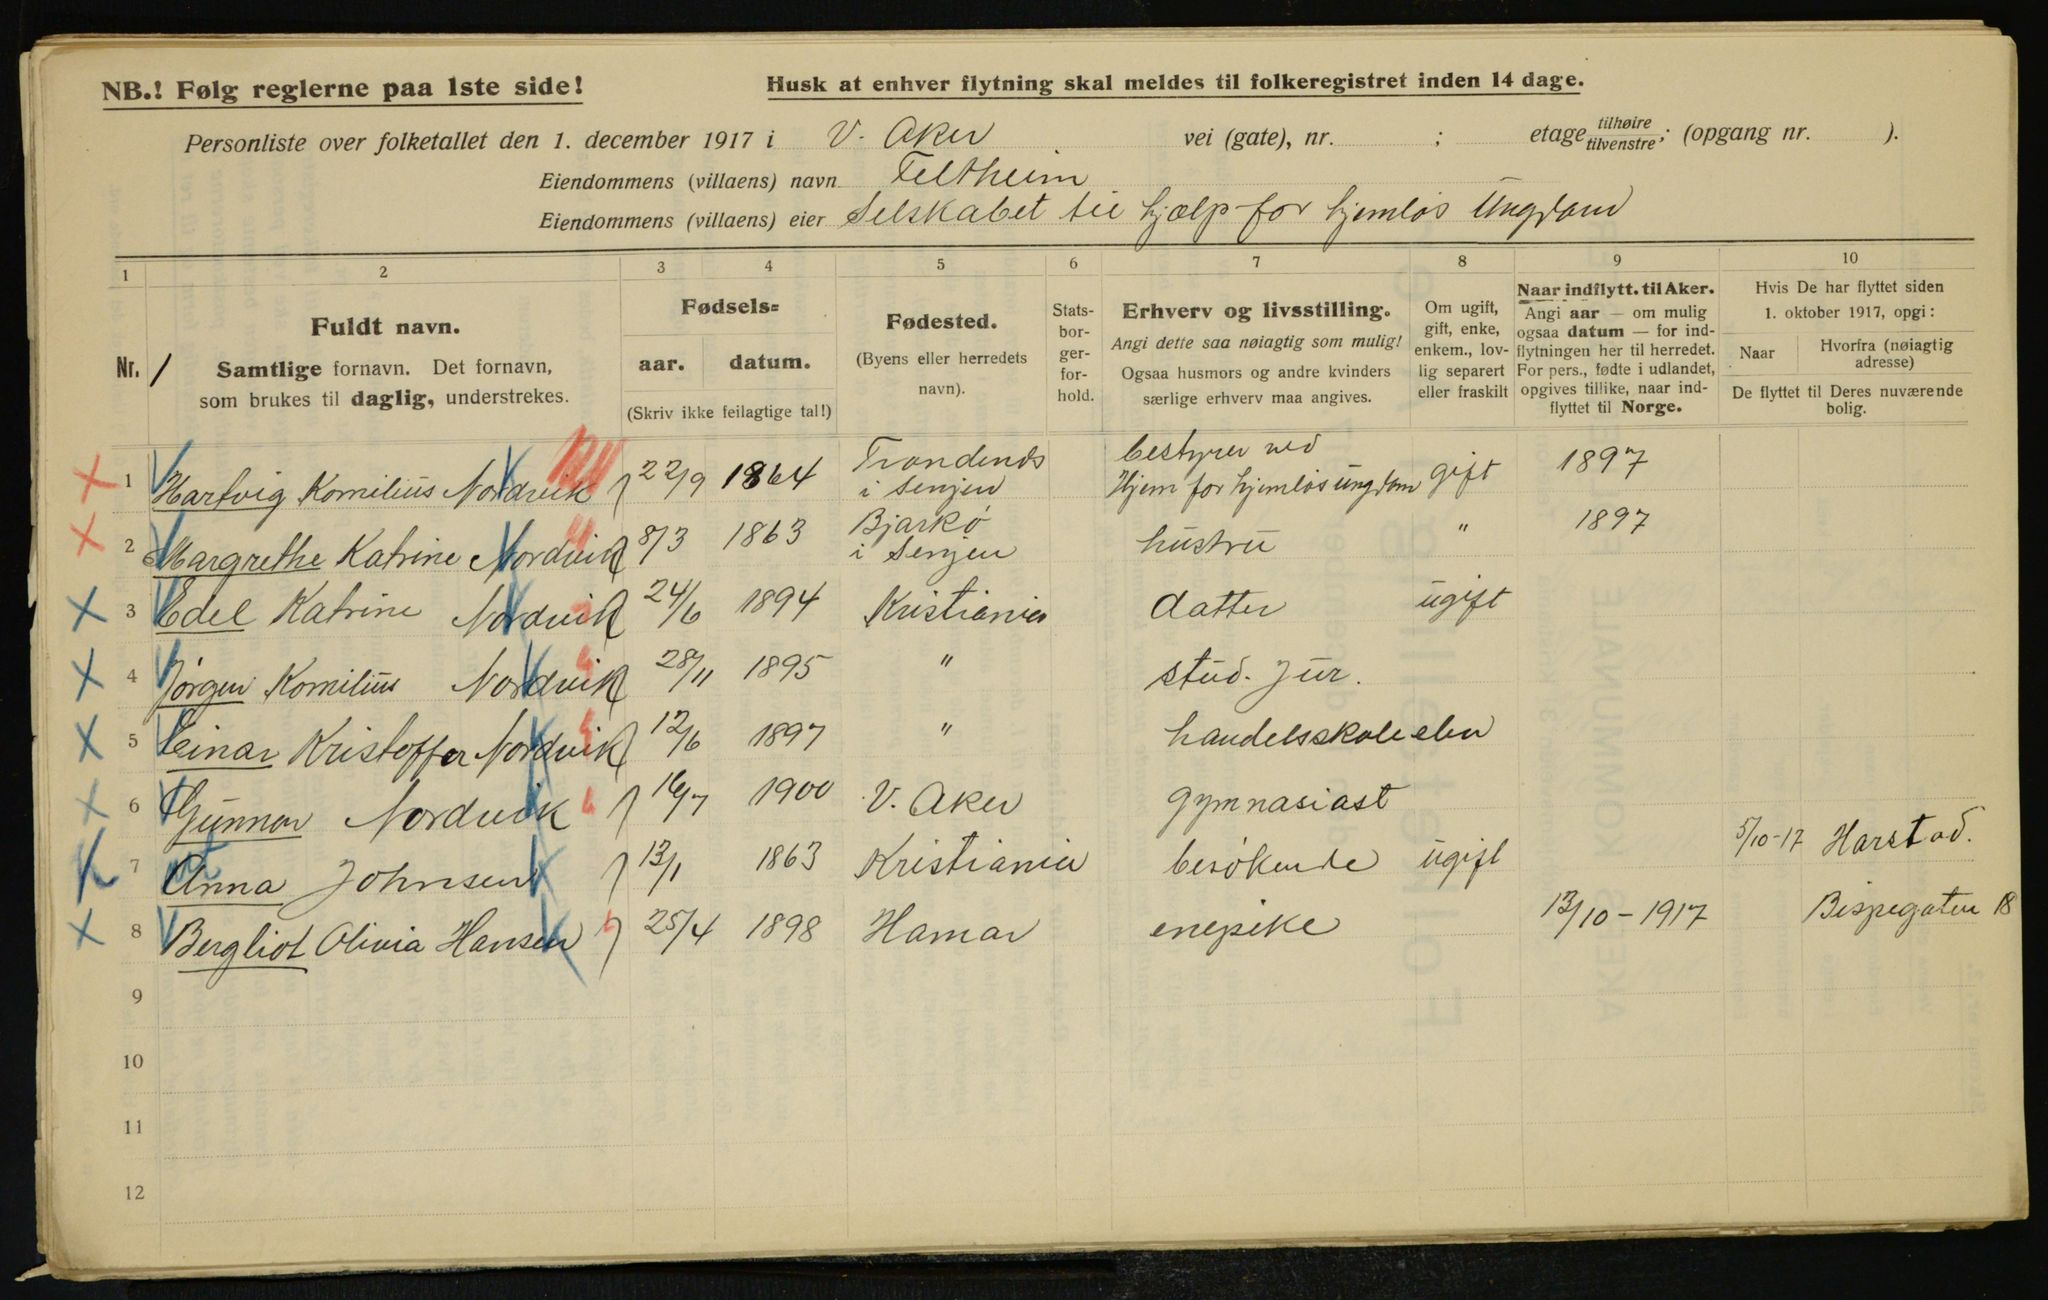 NB.! Følg reglerne paa 1ste side!
Husk at enhver flytning skal meldes til folkeregistret inden 14 dage.
Personliste over folketallet den 1. december 1917 i V. Aker vei (gate), nr. ; etage tilhøire tilvenstre; (opgang nr. ).
Eiendommens (villaens) navn Feltheim
Eiendommens (villaens) eier Selskabet til hjælp for hjemløs Ungdom
1 2 3 4 5 6 7 8 9 10
Nr. 1
Fuldt navn.
Samtlige fornavn. Det fornavn,
som brukes til daglig, understrekes.
Fødsels=
aar. datum.
(Skriv ikke feilagtige tal!)
Fødested.
(Byens eller herredets
navn).
Stats-
bor-
ger-
for-
hold.
Erhverv og livsstilling.
Angi dette saa nøiagtig som mulig!
Ogsaa husmors og andre kvinders
særlige erhverv maa angives.
Om ugift,
gift, enke,
enkem., lov-
lig separert
eller fraskilt
Naar indflytt. til Aker.
Angi aar — om mulig
ogsaa datum — for ind-
flytningen her til herredet.
For pers., fødte i udlandet,
opgives tillike, naar ind-
flyttet til Norge.
Hvis De har flyttet siden
1. oktober 1917, opgi:
Naar Hvorfra (nøiagtig
adresse)
De flyttet til Deres nuværende
bolig.
1 Hartvig Kornilius Nordvik 22/9 1864 Trondenæs i Senjen bestyrer ved Hjem for hjemløs ungdom gift 1897
2 Margrethe Katrine Nordvik 8/3 1863 Bjarkö i Senjen hustru " 1897
3 Edel Katrine Nordvik 24/6 1894 Kristiania datter ugift
4 Jørgen Kornilius Nordvik 28/11 1895 " stud. jur.
5 Einar Kristoffer Nordvik 12/6 1897 " handelsskoleelev
6 Gunnar Nordvik 16/7 1900 V. Aker gymnasiast
7 Anna Johnsen 13/1 1863 Kristiania besökende ugift 5/10-17 Harstad.
8 Bergliot Olivia Hansen 25/4 1898 Hamar enepike 13/10-1917 Bispegaten 18
9
10
11
12